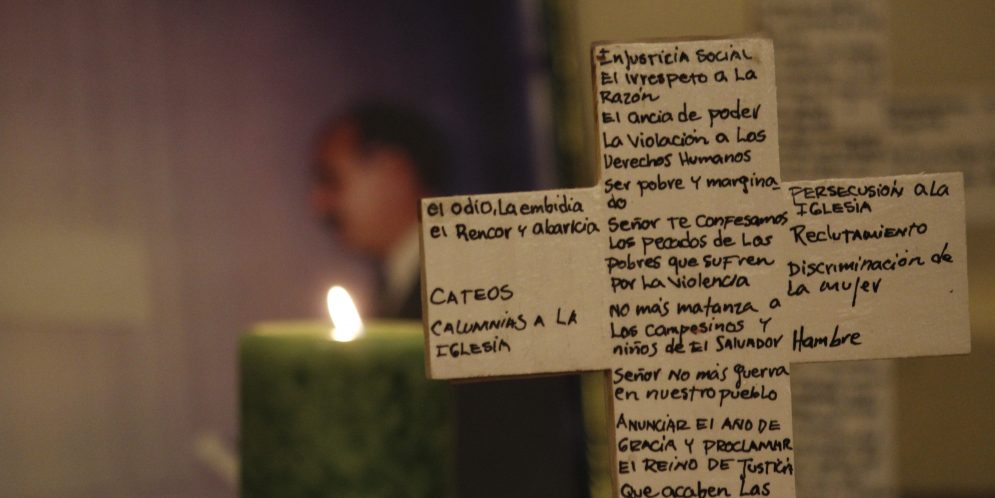 INJUSTICIA SOCIAL
El irrespeto a La
Razón
El ancia de poder
La Violación a Los
Derechos Humanos
Ser pobre Y margina_
do
Señor TE CONFESAMOS
Los pecados de Los
pobres que SUFREN
por La Violencia
NO más matanza a
Los campesinos Y
niños de El SALVADOR
Señor No más guerra
en nuestro pueblo
ANUNCIAR El AÑO DE
GRACIA Y PROCLAMAR
El REINO DE JUSTICIA
Que acaben Las
el odio, La embidia
el Rencor y abaricia
CATEOS
CALUMNIAS A LA
IGLESIA
PERSECUSIÓN A LA
IGLESIA
RECLUTAMIENTO
Discriminación de
La mujer
Hambre